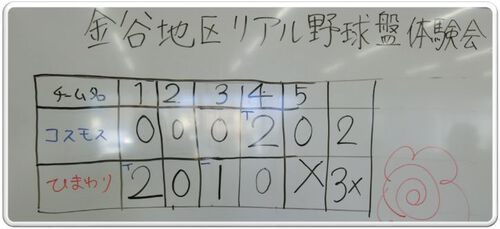 金谷地区リアル野球盤体験会
チーム名 1 2 3 4 5
コスモス 0 0 0 T2 0 2
ひまわり T2 0 T1 0 X 3x